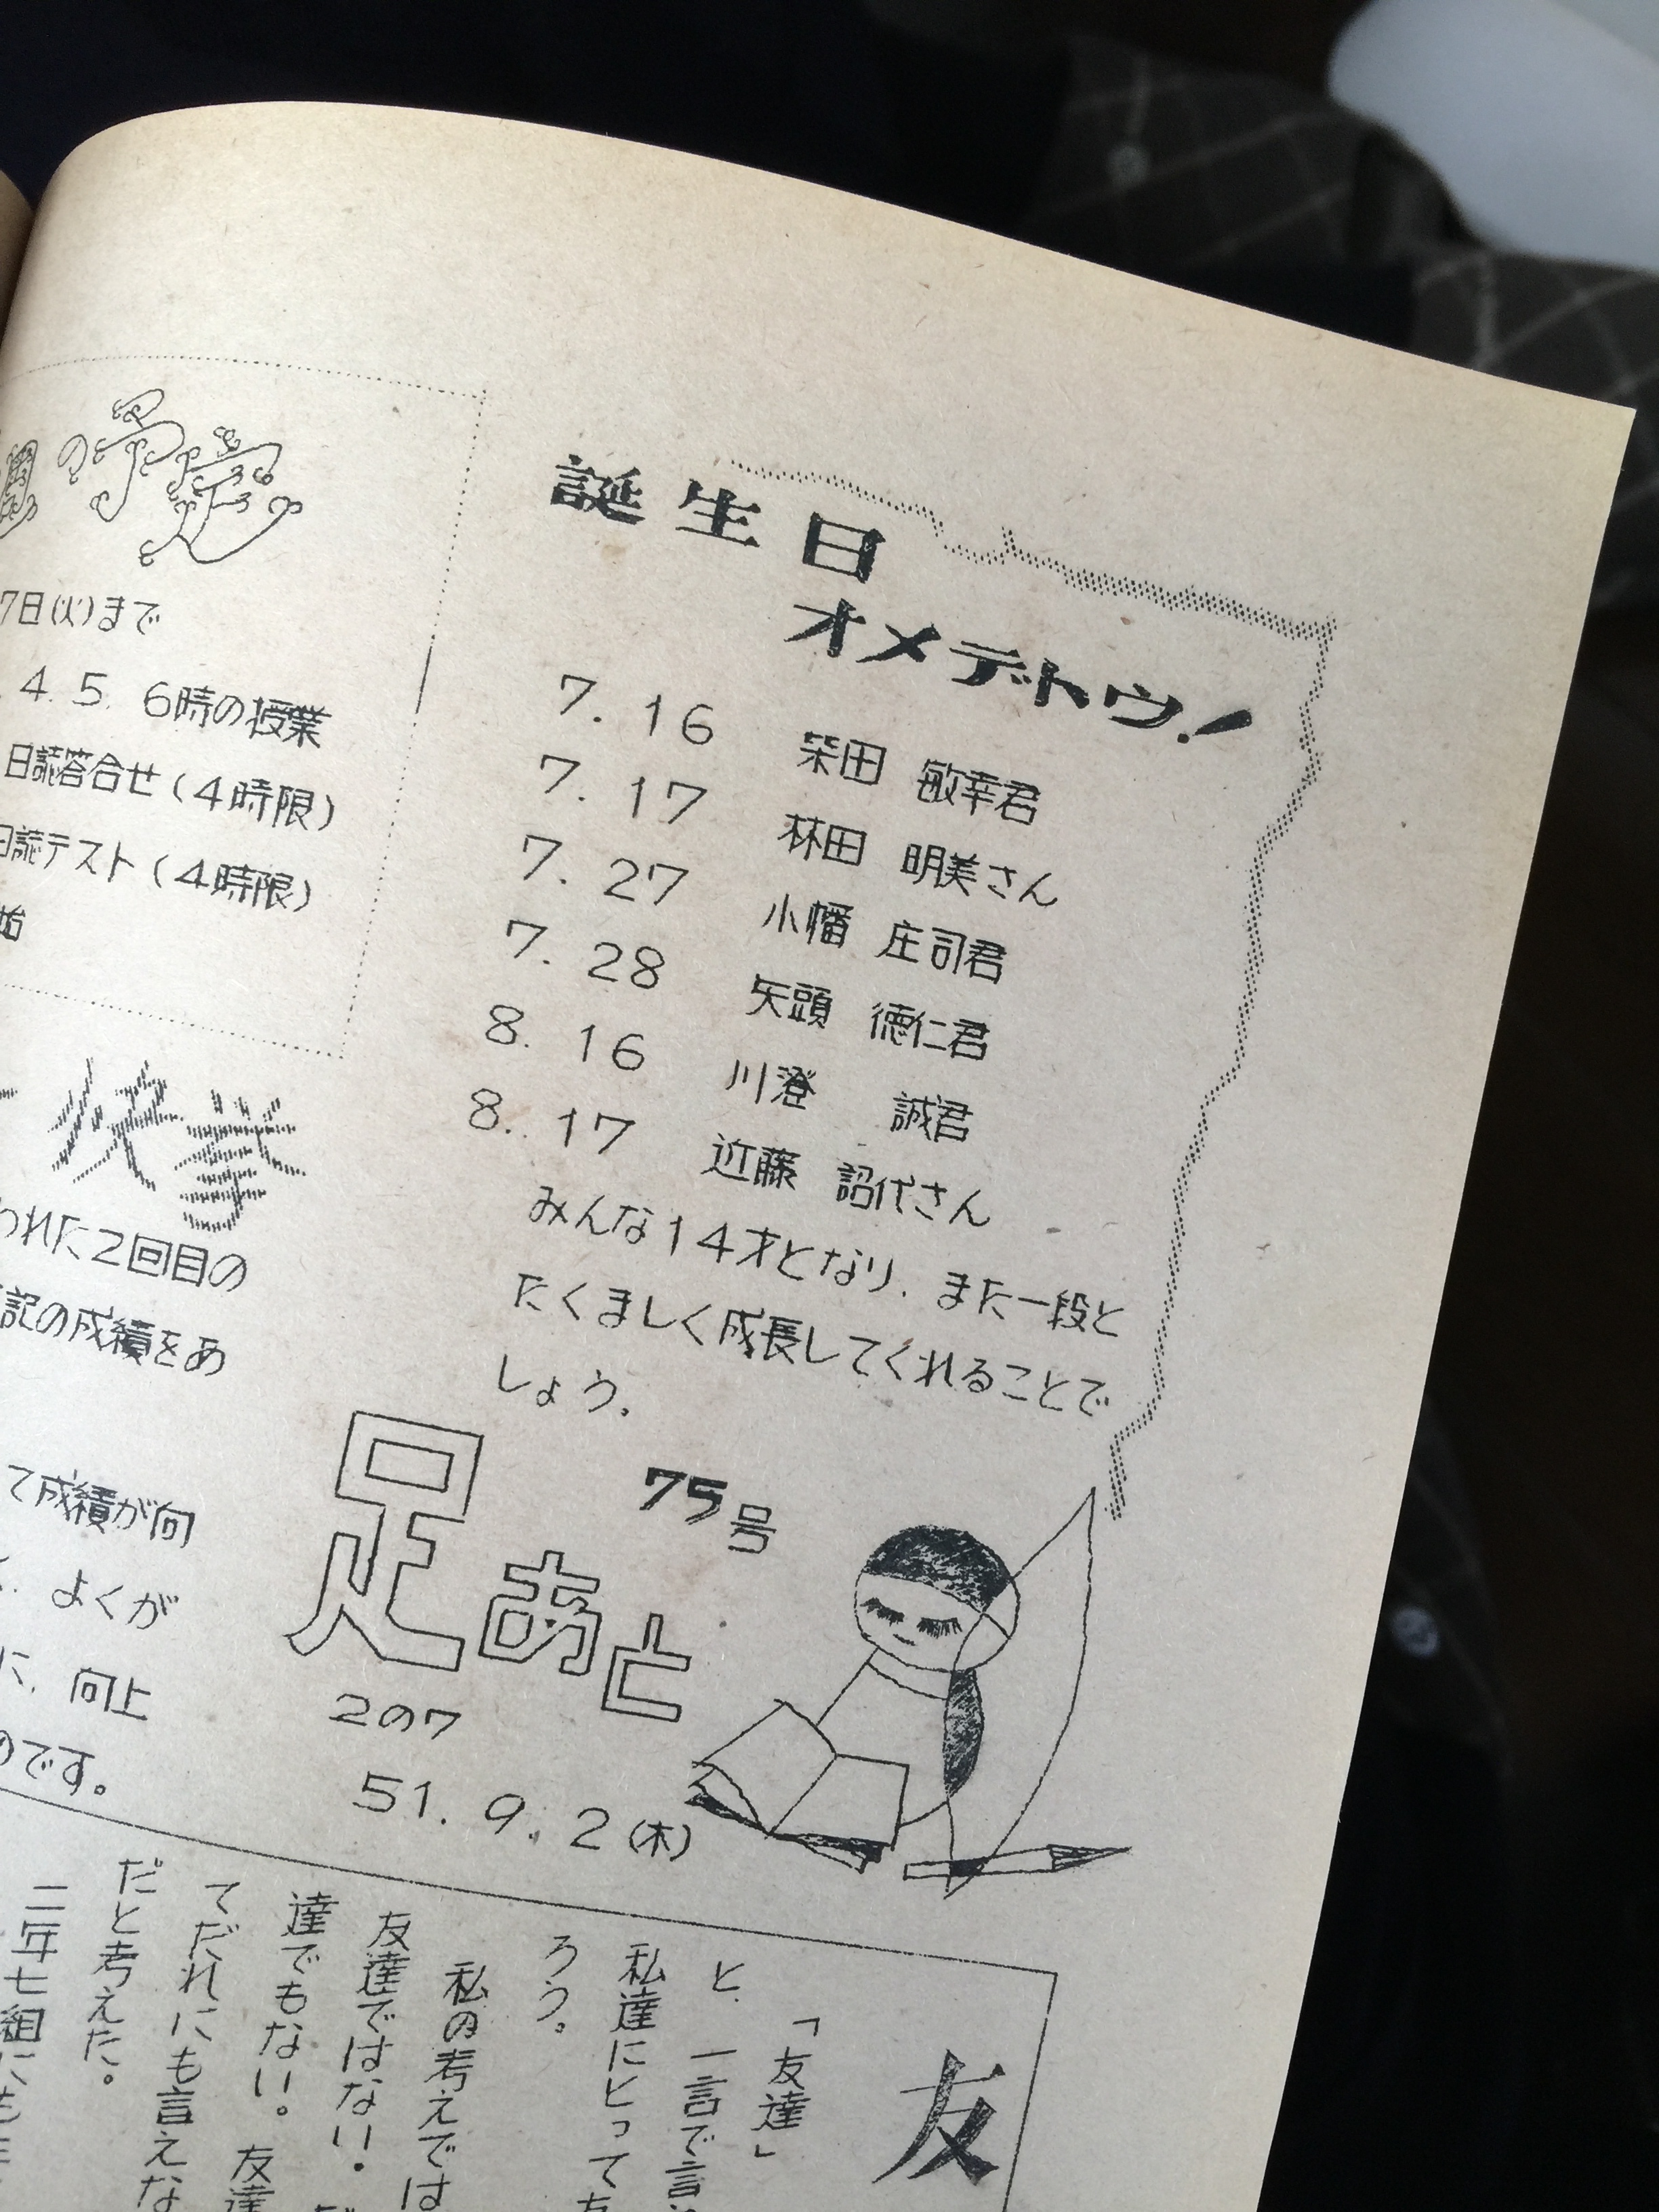 誕生日
オメデトウ!
7. 16 柴田 敏幸君
7. 17 林田 明美さん
7. 27 小幡 庄司君
7. 28 矢頭 徳仁君
8. 16 川澄 誠君
8. 17 近藤 詔代さん
みんな14才となり、また一段と
たくましく成長してくれることで
しょう。
足あと
75号
2の7
51. 9. 2 (木)
の予定
7日(火)まで
4. 5. 6時の授業
日誌答合せ(4時限)
日誌テスト(4時限)
始
快挙
われた2回目の
記の成績をあ
て成績が向
よくが
に、向上
のです。
友
「友達」
と、一言で言
私達にとって
ろう。
私の考えでは
友達ではない。
達でもない。友達
てだれにも言えな
だと考えた。
二年七組にも